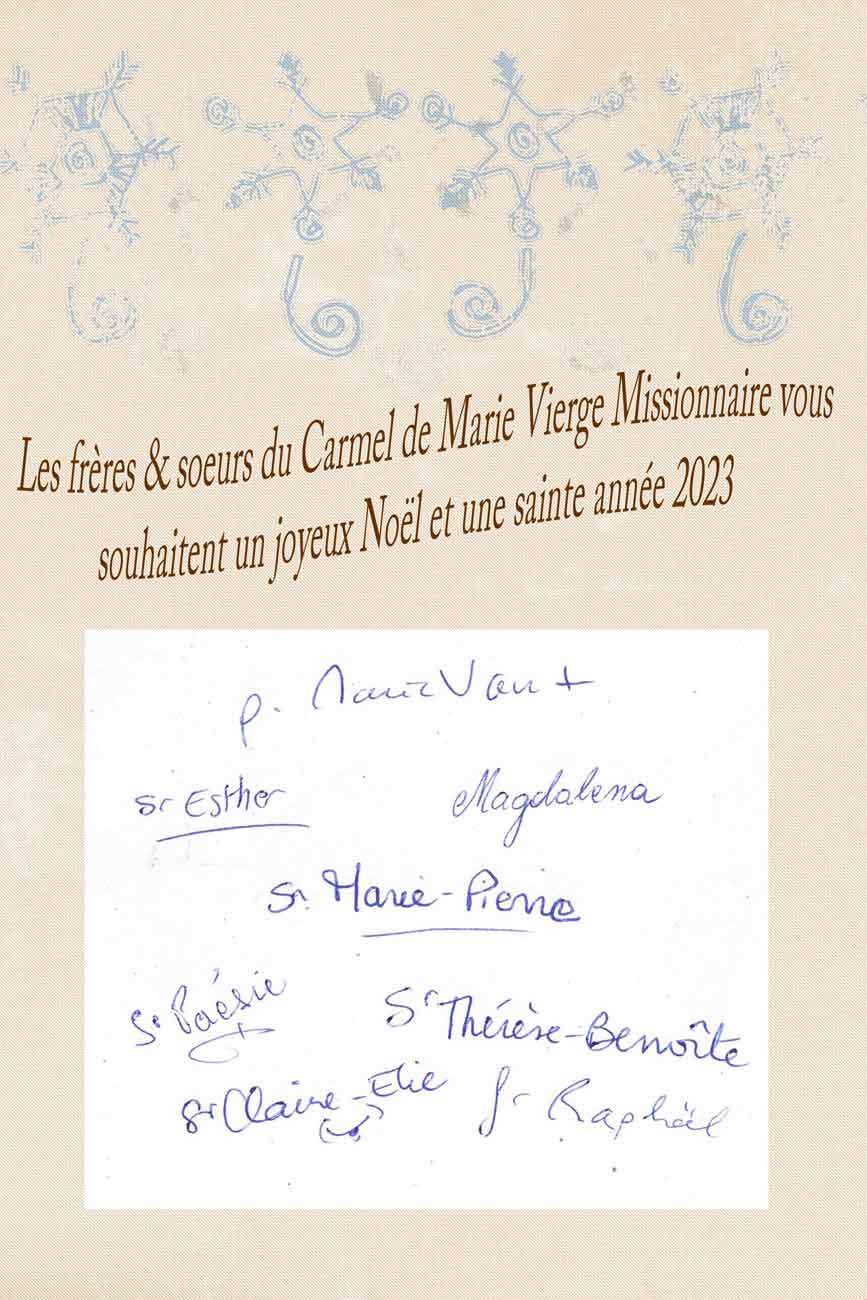 Les frères & soeurs du Carmel de Marie Vierge Missionnaire vous
souhaitent un joyeux Noël et une sainte année 2023
p. Marie Van +
Sr Esther
Magdalena
Sr. Marie-Pierre
Sr Paésie
Sr Thérèse-Benoîte
Sr Claire-Elie
fr Raphaël